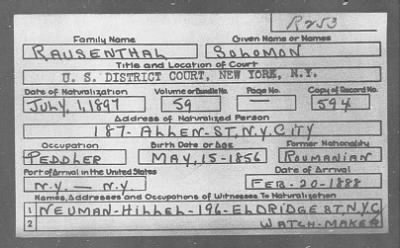 R253
Family Name Given Name or Names
RAUSENTHAL SOLOMON
Title and Location of Court
U. S. DISTRICT COURT, NEW YORK, N.Y.
Date of Naturalization Volume or Bundle No. Page No. Copy of Record No.
JULY, 1, 1897 59 — 594
Address of Naturalized Person
187 - ALLEN - ST, N.Y. CITY
Occupation Birth Date or Age Former Nationality
PEDDLER MAY, 15 - 1856 ROUMANIAN
Port of Arrival in the United States Date of Arrival
N.Y. — N.Y. FEB - 20 - 1888
Names, Addresses and Occupations of Witnesses To Naturalization
1 NEUMAN - HILLEL - 196 - ELDRIDGE ST, N.Y.C
2 WATCH - MAKER